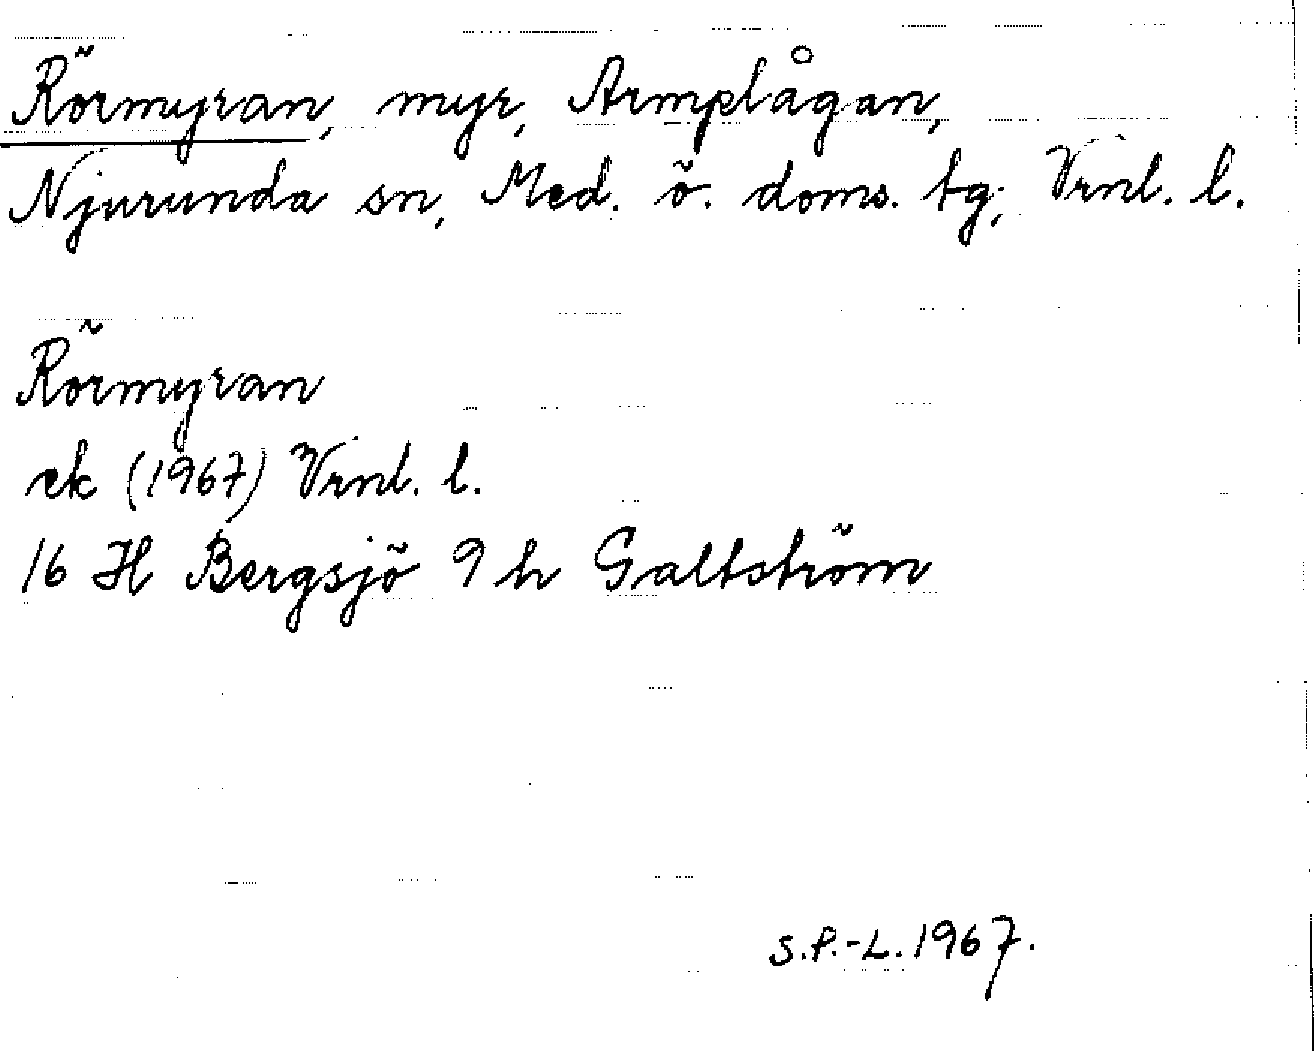 Rörmyran, myr, Armplågan,
Njurunda sn, Med. ö. doms. tg, Vrnl. l.
Rörmyran
ek (1967) Vrnl. l.
16 H Bergsjö 9 h Galtström
S.P.-L. 1967.